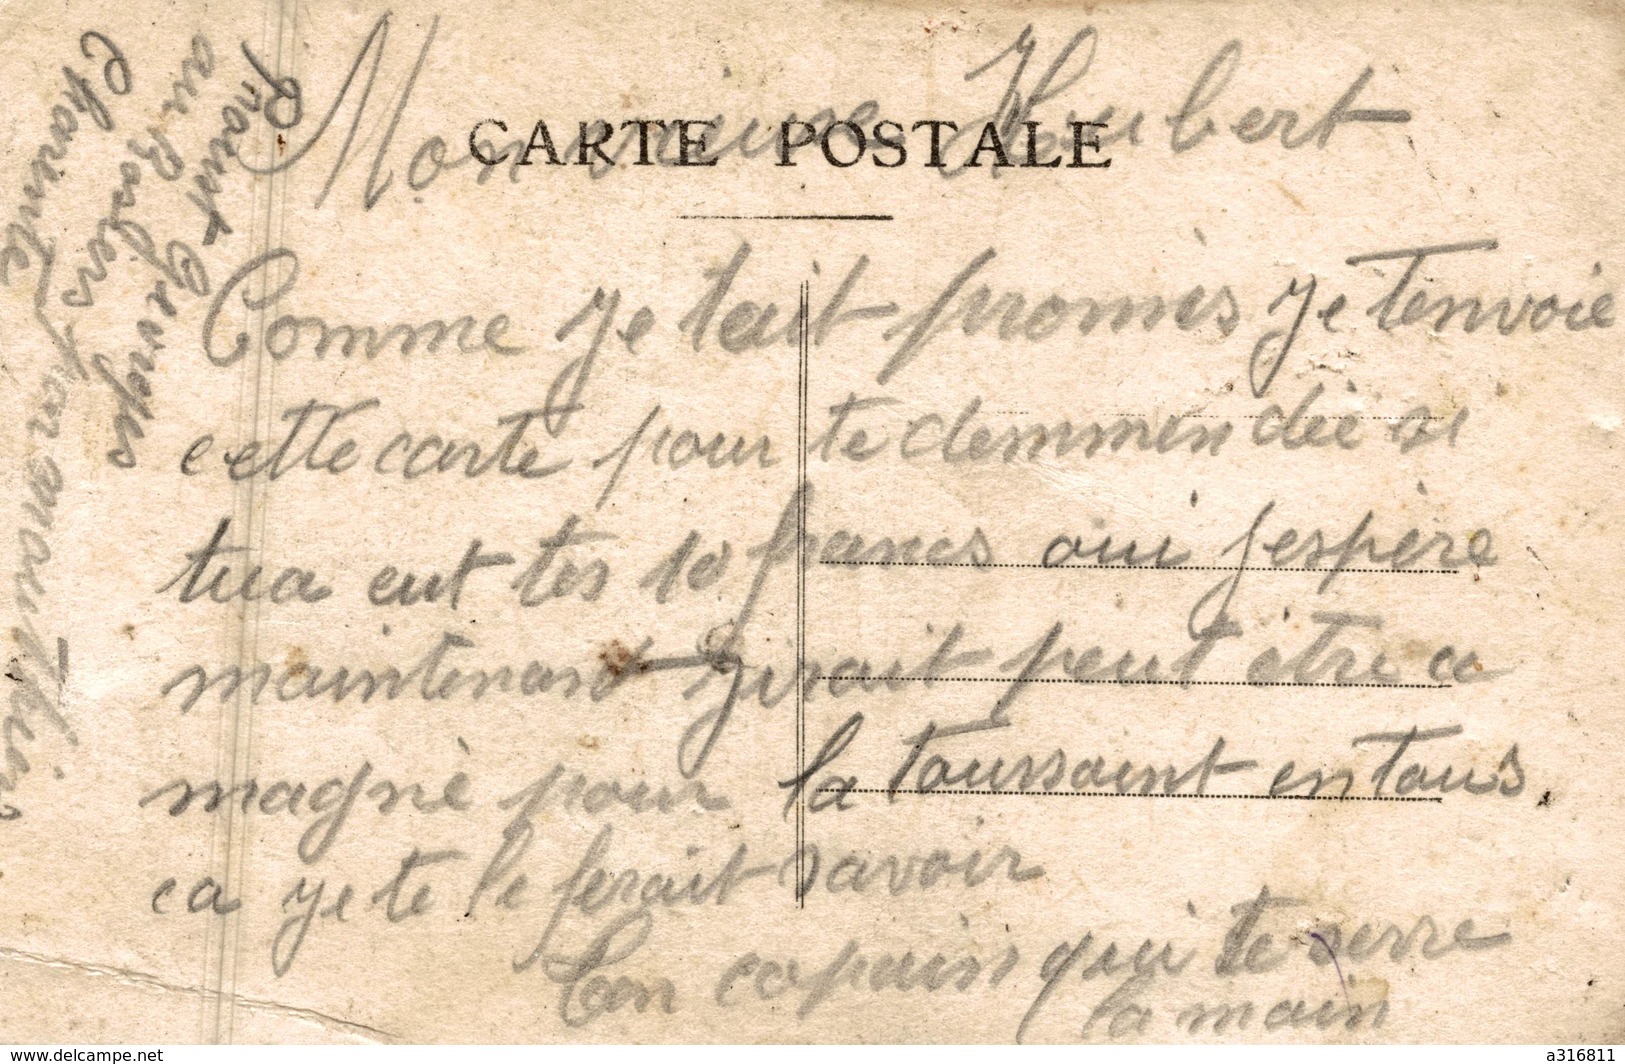 Mon vieux Houbert
CARTE POSTALE
Comme je tait promis je tenvoie
cette carte pour te demmendée si
tua eut tes 10 francs oui jespère
maintenant jirait peut être a
magné pour la Toussaint en tous
ca je te le ferait savoir
Ton copain qui te serre
la main
Gervais
au Roslers
Charente
par montbron
www.delcampe.net
a316811